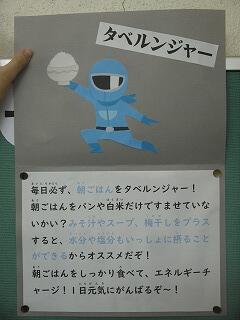 タベルンジャー
毎日必ず、朝ごはんをタベルンジャー！
朝ごはんをパンや白米だけですませていな
いかい？みそ汁やスープ、梅干しをプラス
すると、水分や塩分もいっしょに摂ること
ができるからオススメだぞ！
朝ごはんをしっかり食べて、エネルギーチ
ャージ！１日元気にがんばるぞ～！